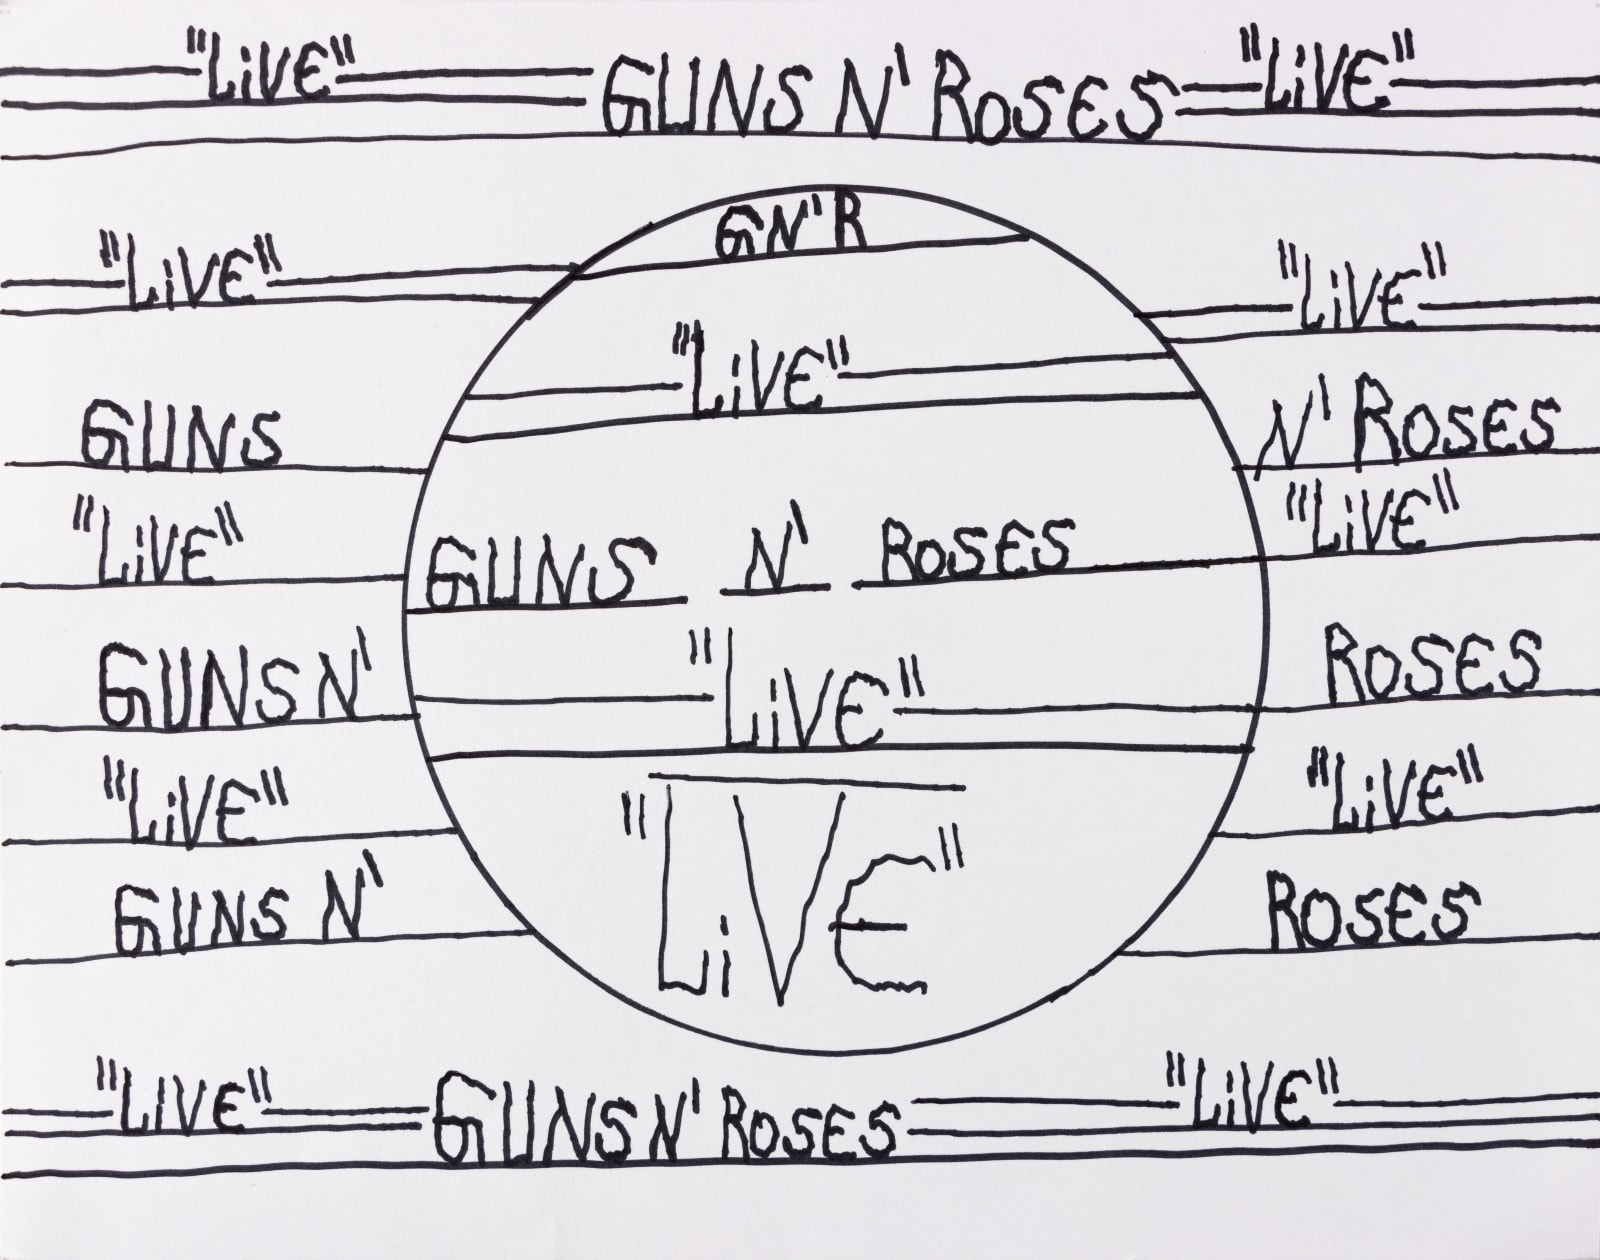 "LiVE" GUNS N' ROSES "LiVE"
GN'R
"LiVE" "LiVE"
"LiVE"
GUNS N' ROSES
"LiVE" "LiVE"
GUNS N' ROSES
GUNS N' ROSES
"LiVE"
"LiVE" "LiVE"
"LiVE"
GUNS N' ROSES
"LIVE" GUNS N' ROSES "LiVE"